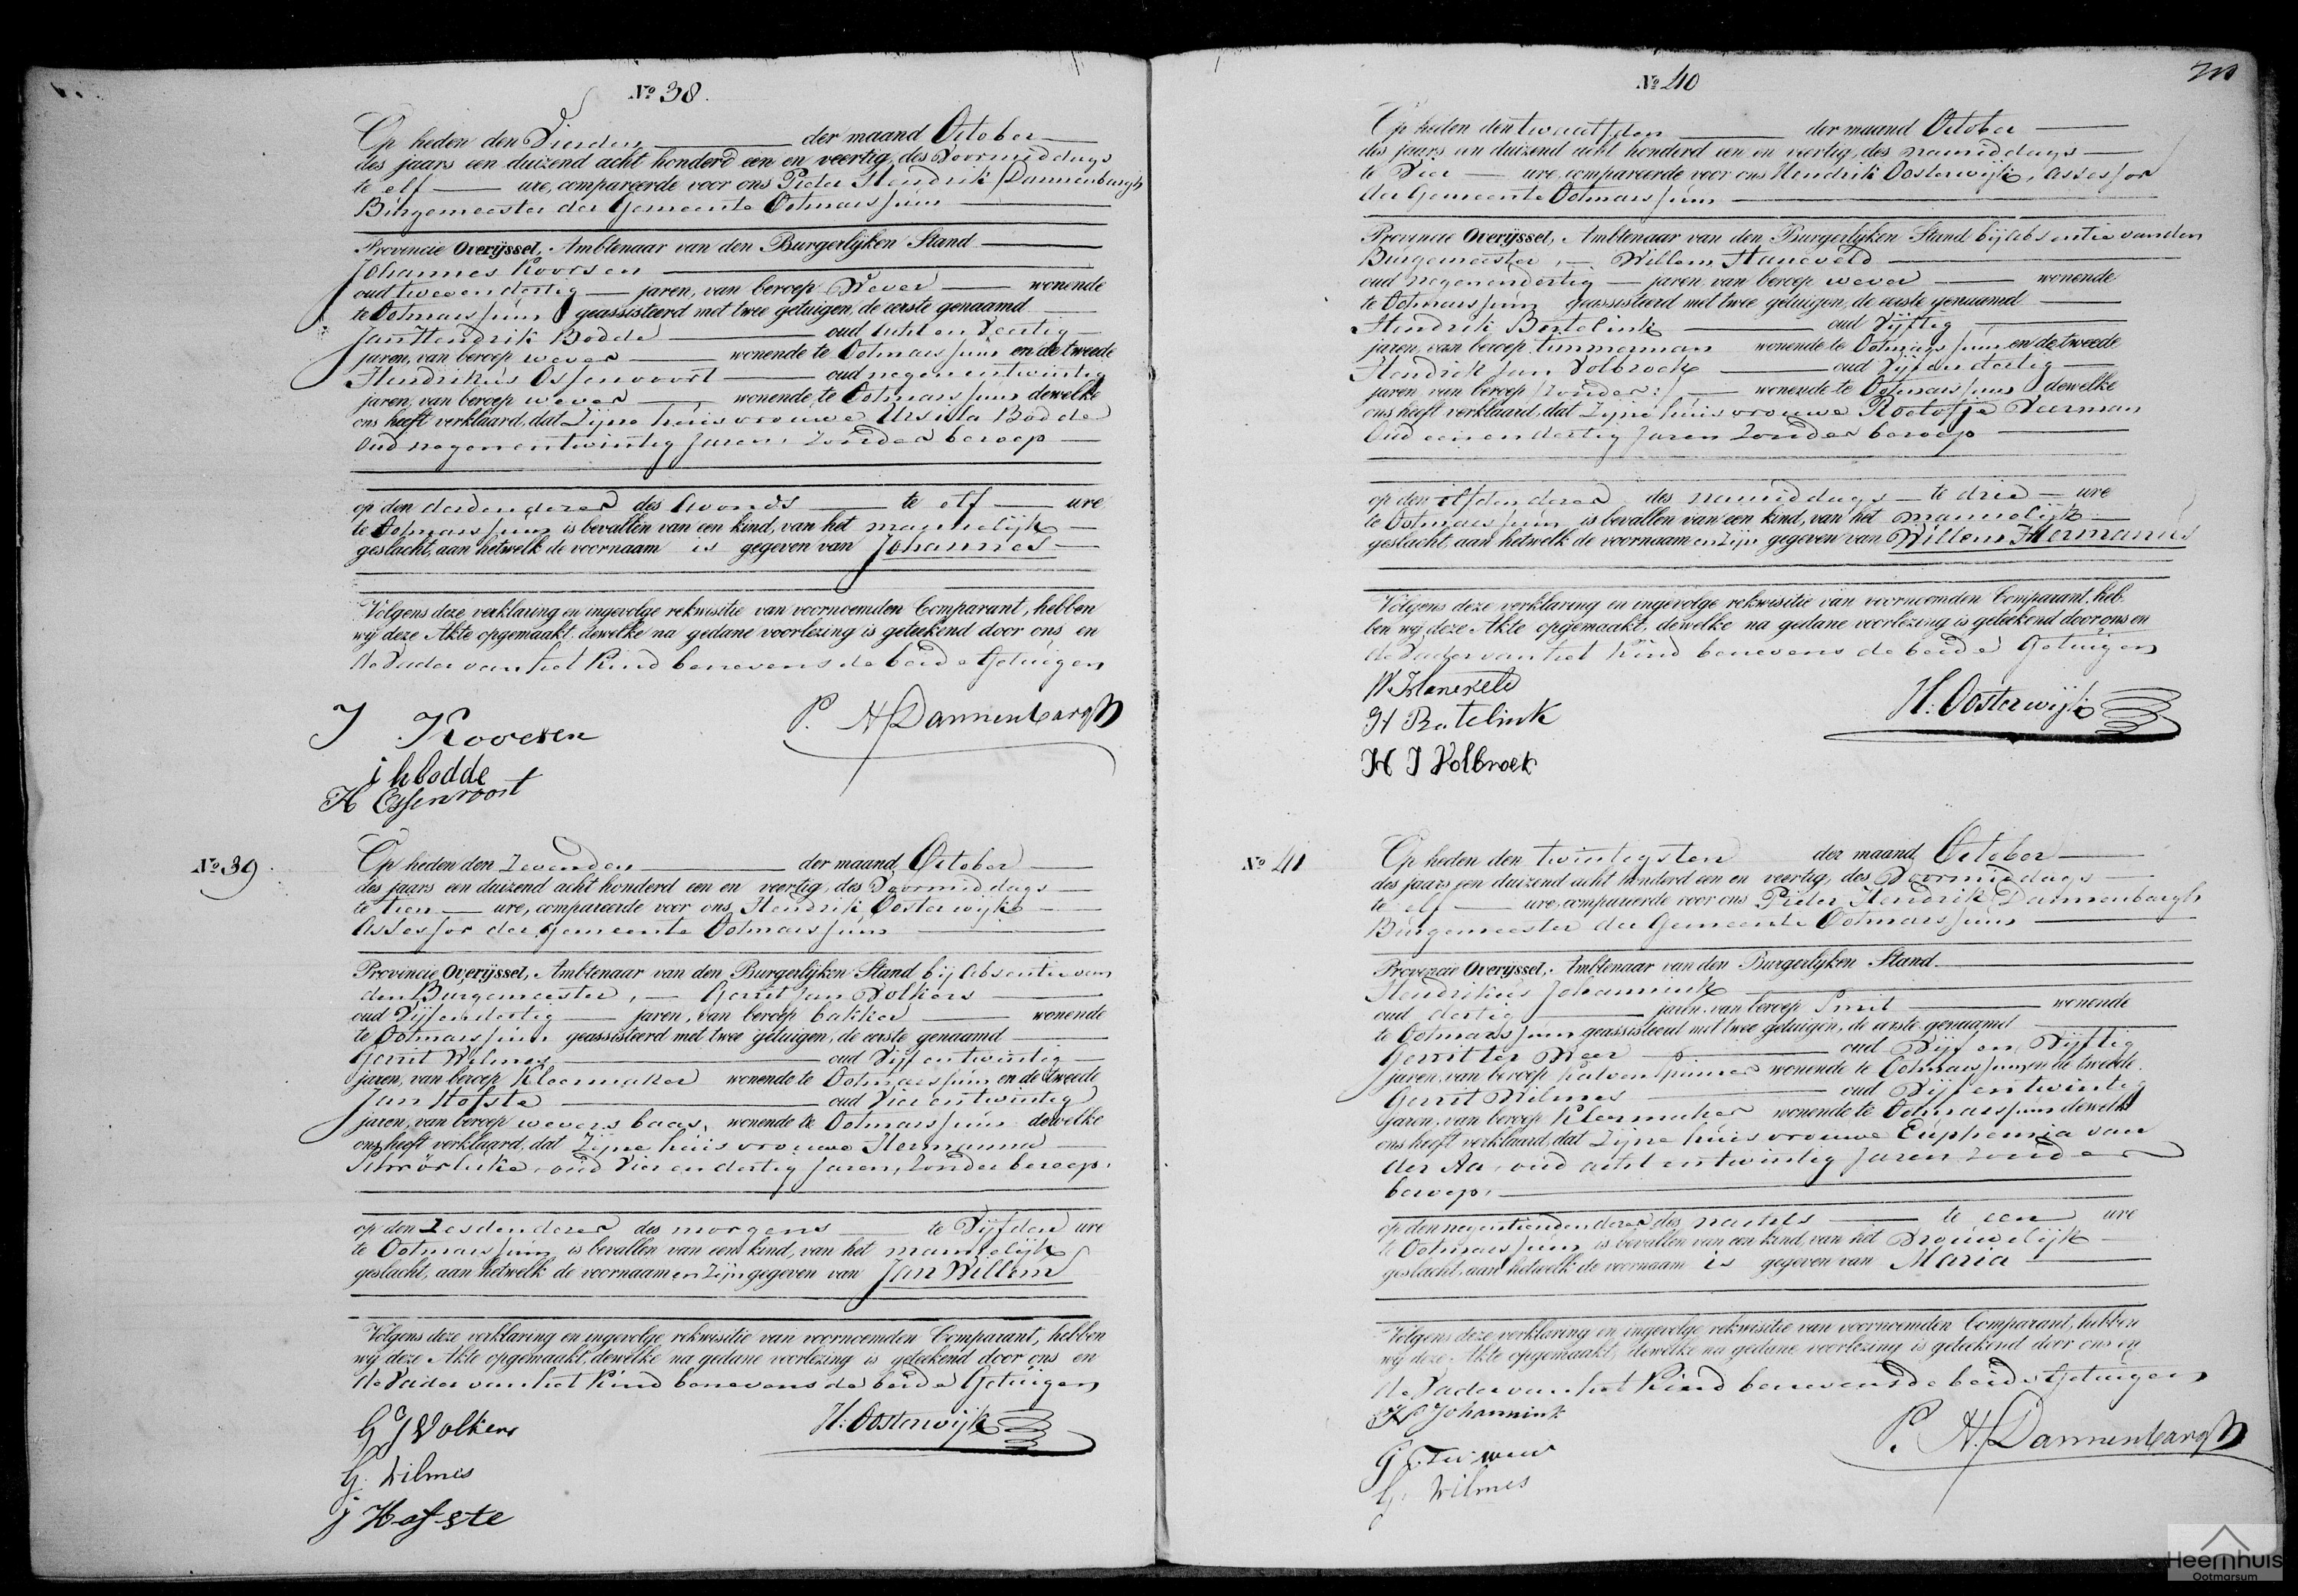 № 38.
Op heden den Vierden der maand October
des jaars een duizend acht honderd een en veertig, des Voormiddags
te elf ure, compareerde voor ons Pieter Hendrik Dannenbargh
Burgemeester der Gemeente Ootmarssum
Provincie Overijssel, Ambtenaar van den Burgerlijken Stand
Johannes Koorsen
oud tweeendertig jaren, van beroep Wever wonende
te Ootmarssum geassisteerd met twee getuigen, de eerste genaamd
Jan Hendrik Bodde oud acht en Veertig
jaren, van beroep wever wonende te Ootmarssum en de tweede
Hendrikus Ossenvoort oud negenentwintig
jaren, van beroep wever wonende te Ootmarssum dewelke
ons heeft verklaard, dat Zijne huisvrouwe Ursula Bodde
Oud negenentwintig Jaren, Zonder beroep
op den derden dezer des Avonds te elf ure
te Ootmarssum is bevallen van een kind, van het mannelijk
geslacht, aan hetwelk de voornaam is gegeven van Johannes
Volgens deze verklaring en ingevolge rekwisitie van voornoemden Comparant, hebben
wij deze Akte opgemaakt, dewelke na gedane voorlezing is geteekend door ons en
de Vader van het Kind benevens de beide Getuigen
J Koorsen
P. H Dannenbargh
i h bodde
H Ossenvoort
№ 39.
Op heden den Zevenden der maand October
des jaars een duizend acht honderd een en veertig, des Voormiddags
te tien ure, compareerde voor ons, Hendrik Oosterwijk
Assessor der Gemeente Ootmarssum
Provincie Overijssel, Ambtenaar van den Burgerlijken Stand bij Absentie van
den Burgemeester, Gerrit Jan Volkers
oud Vijfendertig jaren, van beroep bakker wonende
te Ootmarssum geassisteerd met twee getuigen, de eerste genaamd
Gerrit Wilmes oud Vijfentwintig
jaren, van beroep Kleermaker wonende te Ootmarssum en de tweede
Jan Hofste oud Vierentwintig
jaren, van beroep wevers baas, wonende te Ootmarssum dewelke
ons heeft verklaard, dat Zijne huisvrouwe Hermanna
oud Vier en dertig Jaren, Zonder beroep,
op den Zesden dezer des morgens te Vijf ure
te Ootmarssum is bevallen van een kind, van het mannelijk
geslacht, aan hetwelk de voornaam en Zijn gegeven van Jan Willem
Volgens deze verklaring en ingevolge rekwisitie van voornoemden Comparant, hebben
wij deze Akte opgemaakt, dewelke na gedane voorlezing is geteekend door ons en
de Vader van het Kind benevens de beide Getuigen
G J Volkers
H: Oosterwijk
G. Wilmes
j Hofste
№ 40
Op heden den twaalfden der maand October
des jaars een duizend acht honderd een en veertig, des namiddags
te Vier ure, compareerde voor ons Hendrik Oosterwijk, Assessor
der Gemeente Ootmarssum
Provincie Overijssel, Ambtenaar van den Burgerlijken Stand bij Absentie van den
Burgemeester, Willem Haneveld
oud negenendertig jaren, van beroep wever wonende
te Ootmarssum geassisteerd met twee getuigen, de eerste genaamd
Hendrik Bertelink oud Vijftig
jaren, van beroep timmerman wonende te Ootmarssum en de tweede
Hendrik Jan Volbroek oud Vijfendertig
jaren, van beroep /:zonder:/ wonende te Ootmarssum dewelke
ons heeft verklaard, dat Zijne huisvrouwe Roelofje Veerman
Oud een en dertig Jaren Zonder beroep
op den elfden dezer des namiddags te drie ure
te Ootmarssum is bevallen van een kind, van het mannelijk
geslacht, aan hetwelk de voornaam en Zijn gegeven van Willem Hermanus
Volgens deze verklaring en ingevolge rekwisitie van voornoemden Comparant, heb
ben wij deze Akte opgemaakt, dewelke na gedane voorlezing is geteekend door ons en
de Vader van het Kind benevens de beide Getuigen
W. Haneveld
H: Oosterwijk
H Batelink
H J Volbroek
№ 41
Op heden den twintigsten der maand October
des jaars een duizend acht honderd een en veertig, des Voormiddags
te elf ure, compareerde voor ons Pieter Hendrik Dannenbargh
Burgemeester der Gemeente Ootmarssum
Provincie Overijssel, Ambtenaar van den Burgerlijken Stand
Hendrikus Johannink
oud dertig jaren, van beroep Smit wonende
te Ootmarssum geassisteerd met twee getuigen, de eerste genaamd
Gerrit ter Weer oud Vijf en Vijftig
jaren, van beroep wonende te Ootmarssum en de tweede
Gerrit Wilmes oud Vijfentwintig
jaren, van beroep Kleermaker wonende te Ootmarssum dewelke
ons heeft verklaard, dat Zijne huisvrouwe Euphemia van
der Aa, oud acht entwintig Jaren Zonder
beroep,
op den negentienden dezer des nachts te een ure
te Ootmarssum is bevallen van een kind, van het Vrouwelijk
geslacht, aan hetwelk de voornaam is gegeven van Maria
Volgens deze verklaring en ingevolge rekwisitie van voornoemden Comparant, hebben
wij deze Akte opgemaakt, dewelke na gedane voorlezing is geteekend door ons en
de Vader van het Kind benevens de beide Getuigen
H Johannink
P. H. Dannenbargh
G. Wilmes
Heemhuis
Ootmarsum